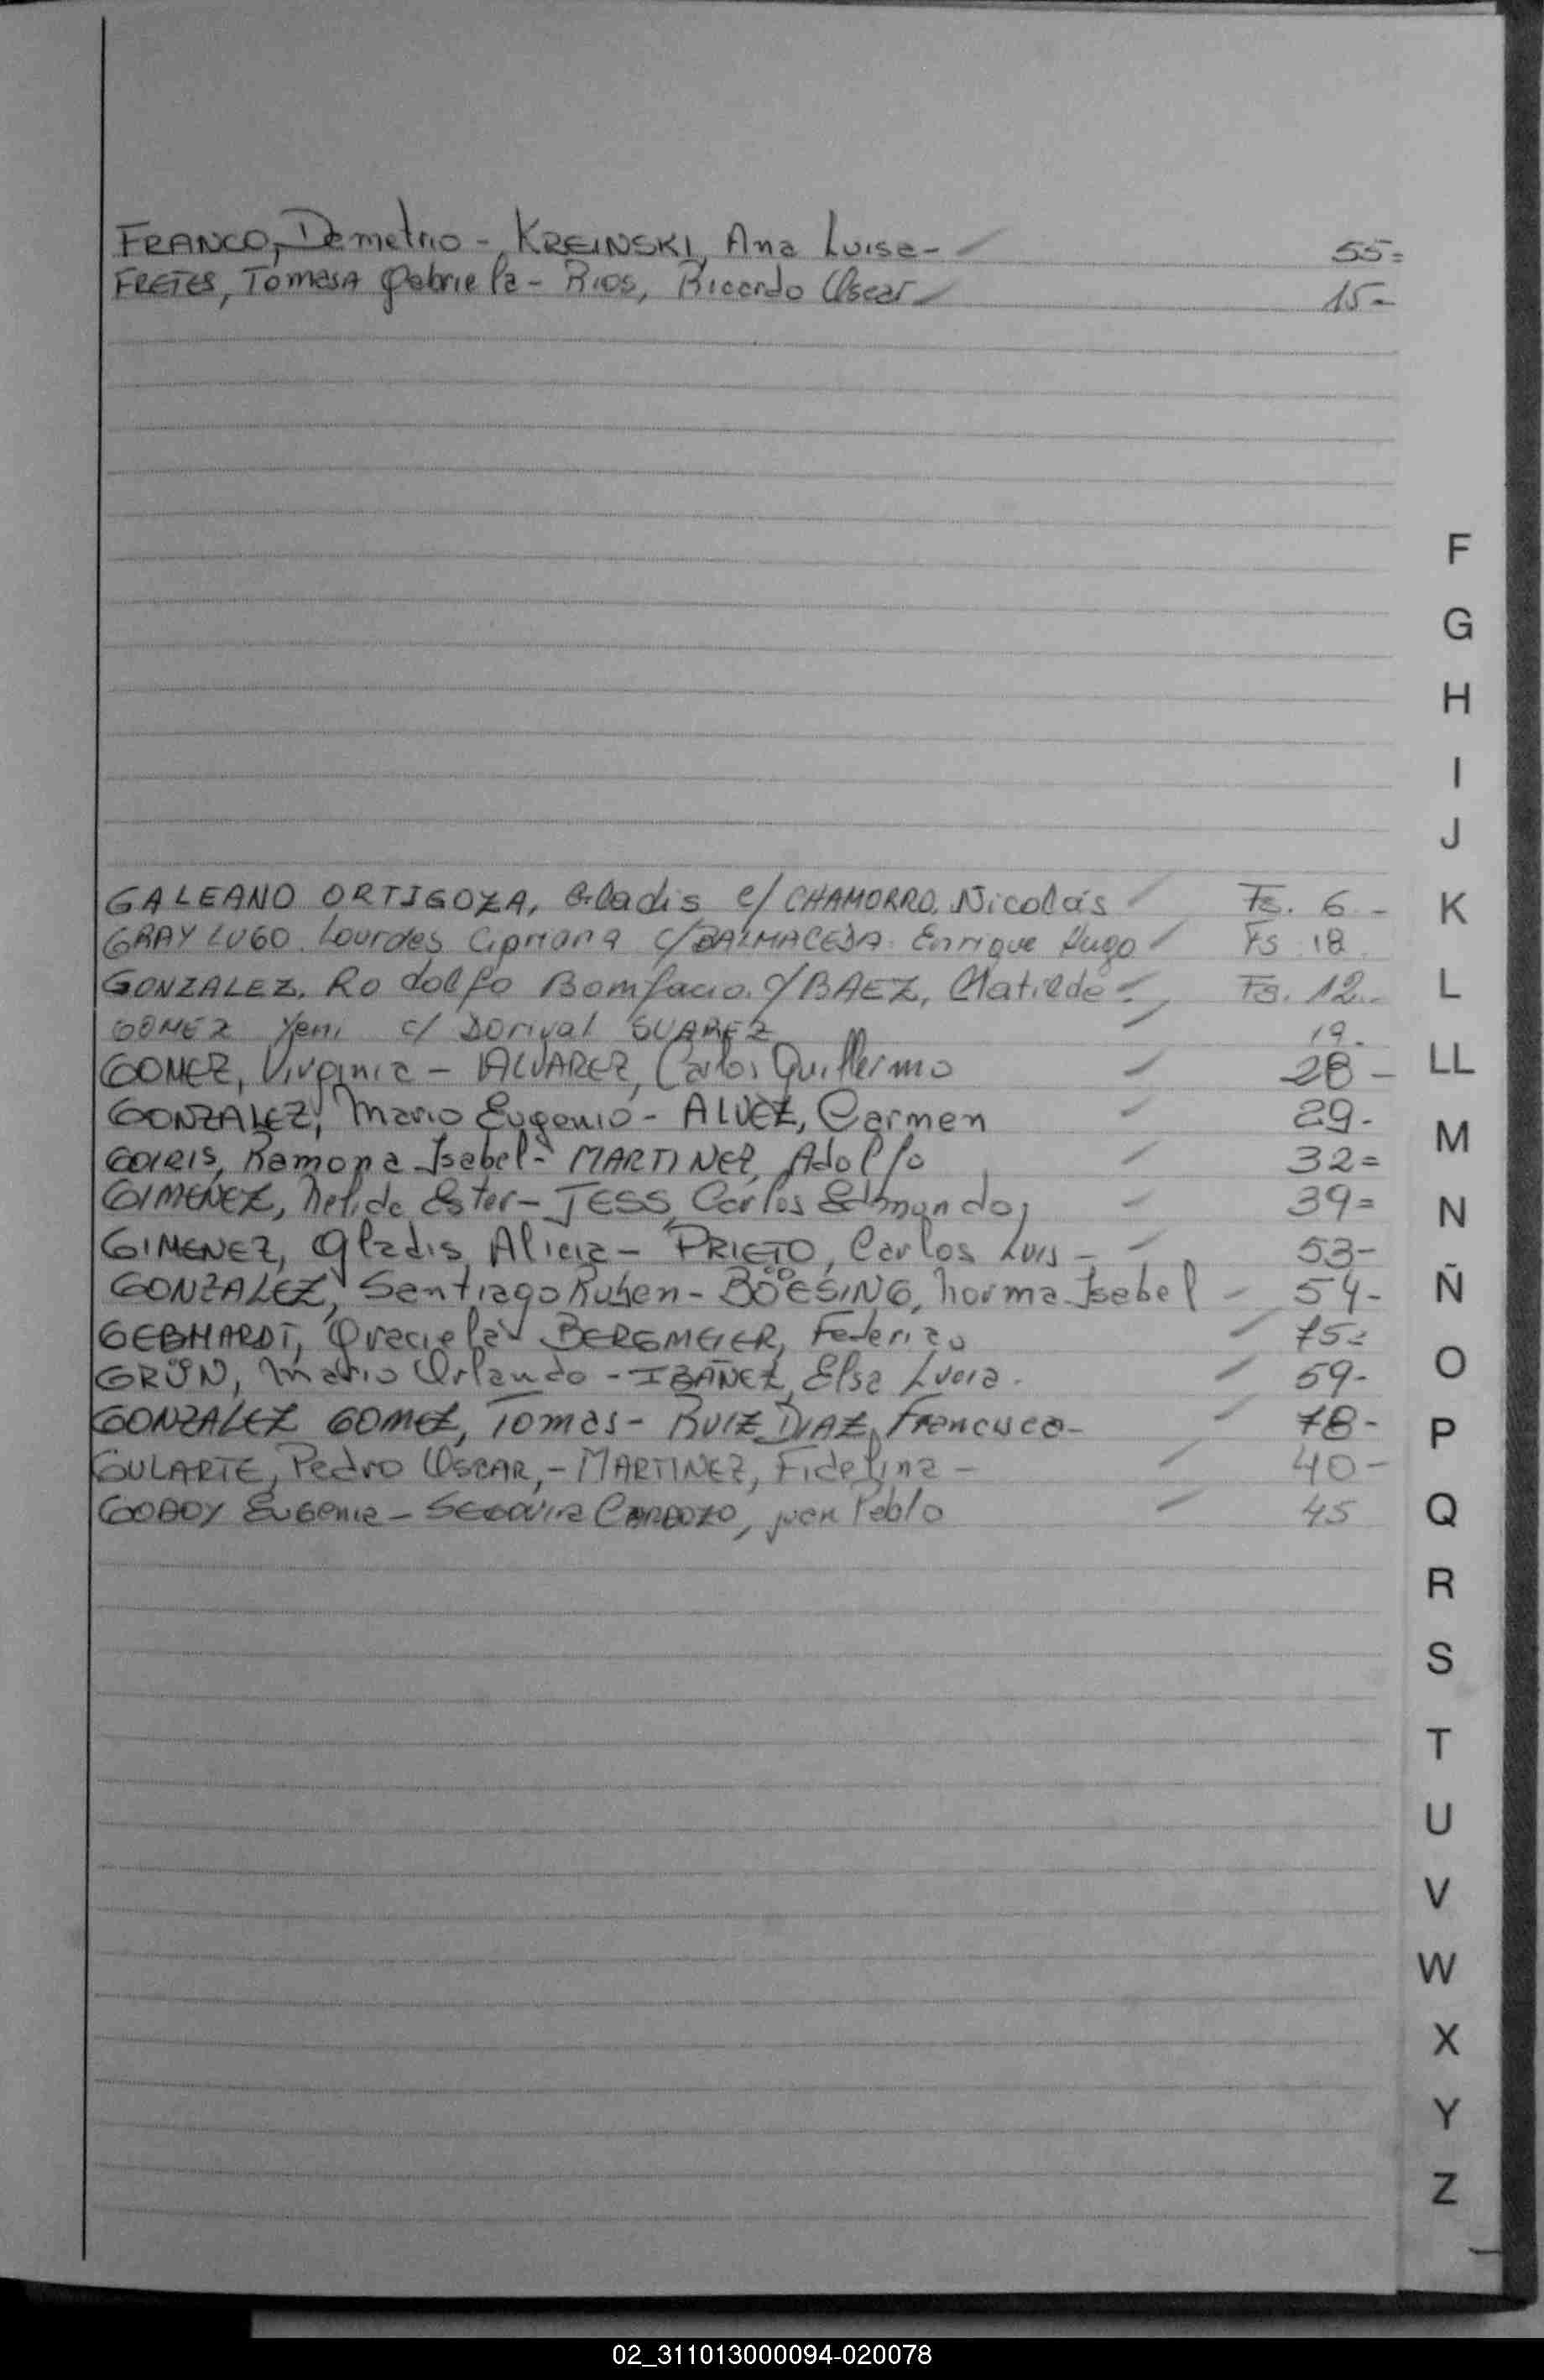 FRANCO, Demetrio - KREINSKI, Ana Luisa - 55=
FRETES, Tomasa Gabriela - Rios, Ricardo Oscar 15-
GALEANO ORTIGOZA, Gladis c/ CHAMORRO, Nicolás Fs. 6-
GRAY LUGO. Lourdes Cipriana c/ BALMACEDA. Enrique Hugo Fs 18
GONZALEZ, Rodolfo Bonifacio. c/ BAEZ, Matilde- Fs. 12-
GOMEZ Yeni c/ Dorival SUAREZ 19.
GOMEZ, Virginia - ALVAREZ, Carlos Guillermo 28-
GONZALEZ, Mario Eugenio - ALVEZ, Carmen 29-
GOIRIS, Ramona Isabel - MARTINEZ, Adolfo 32=
GIMENEZ, Nelida Ester - JESS, Carlos Edmundo, 39=
GIMENEZ, Gladis Alicia - PRIETO, Carlos Luis - 53-
GONZALEZ, Santiago Ruben - BÖESING, Norma Isabel - 54-
GEBHARDT, Graciela BERGMEIER, Federico 75=
GRÜN, Mario Orlando - IBAÑEZ, Elsa Lucia. 59-
GONZALEZ GOMEZ, Tomas - RUIZ DIAZ, Francisca - 78-
GULARTE, Pedro OSCAR, - MARTINEZ, Fidelina - 40-
GODOY Eugenia - SEGOVIA CARDOZO, Juan Pablo 45
F
G
H
I
J
K
L
LL
M
N
Ñ
O
P
Q
R
S
T
U
V
W
X
Y
Z
02_311013000094-020078